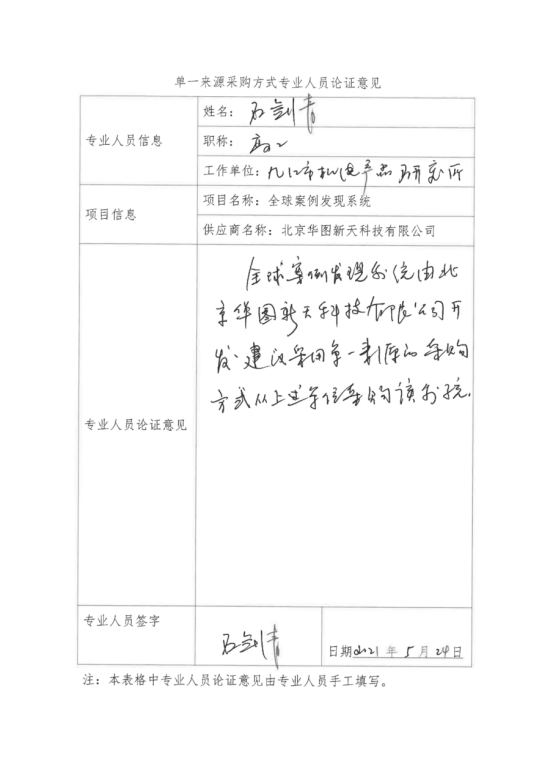 单一来源采购方式专业人员论证意见
专业人员信息
姓名：石剑青
职称：高工
工作单位：九江市机电产品研究所
项目信息
项目名称：全球案例发现系统
供应商名称：北京华图新天科技有限公司
专业人员论证意见
全球案例发现系统由北
京华图新天科技有限公司开
发。建议采用单一来源的采购
方式从上述单位采购该系统。
专业人员签字
石剑青
日期2021年5月24日
注：本表格中专业人员论证意见由专业人员手工填写。